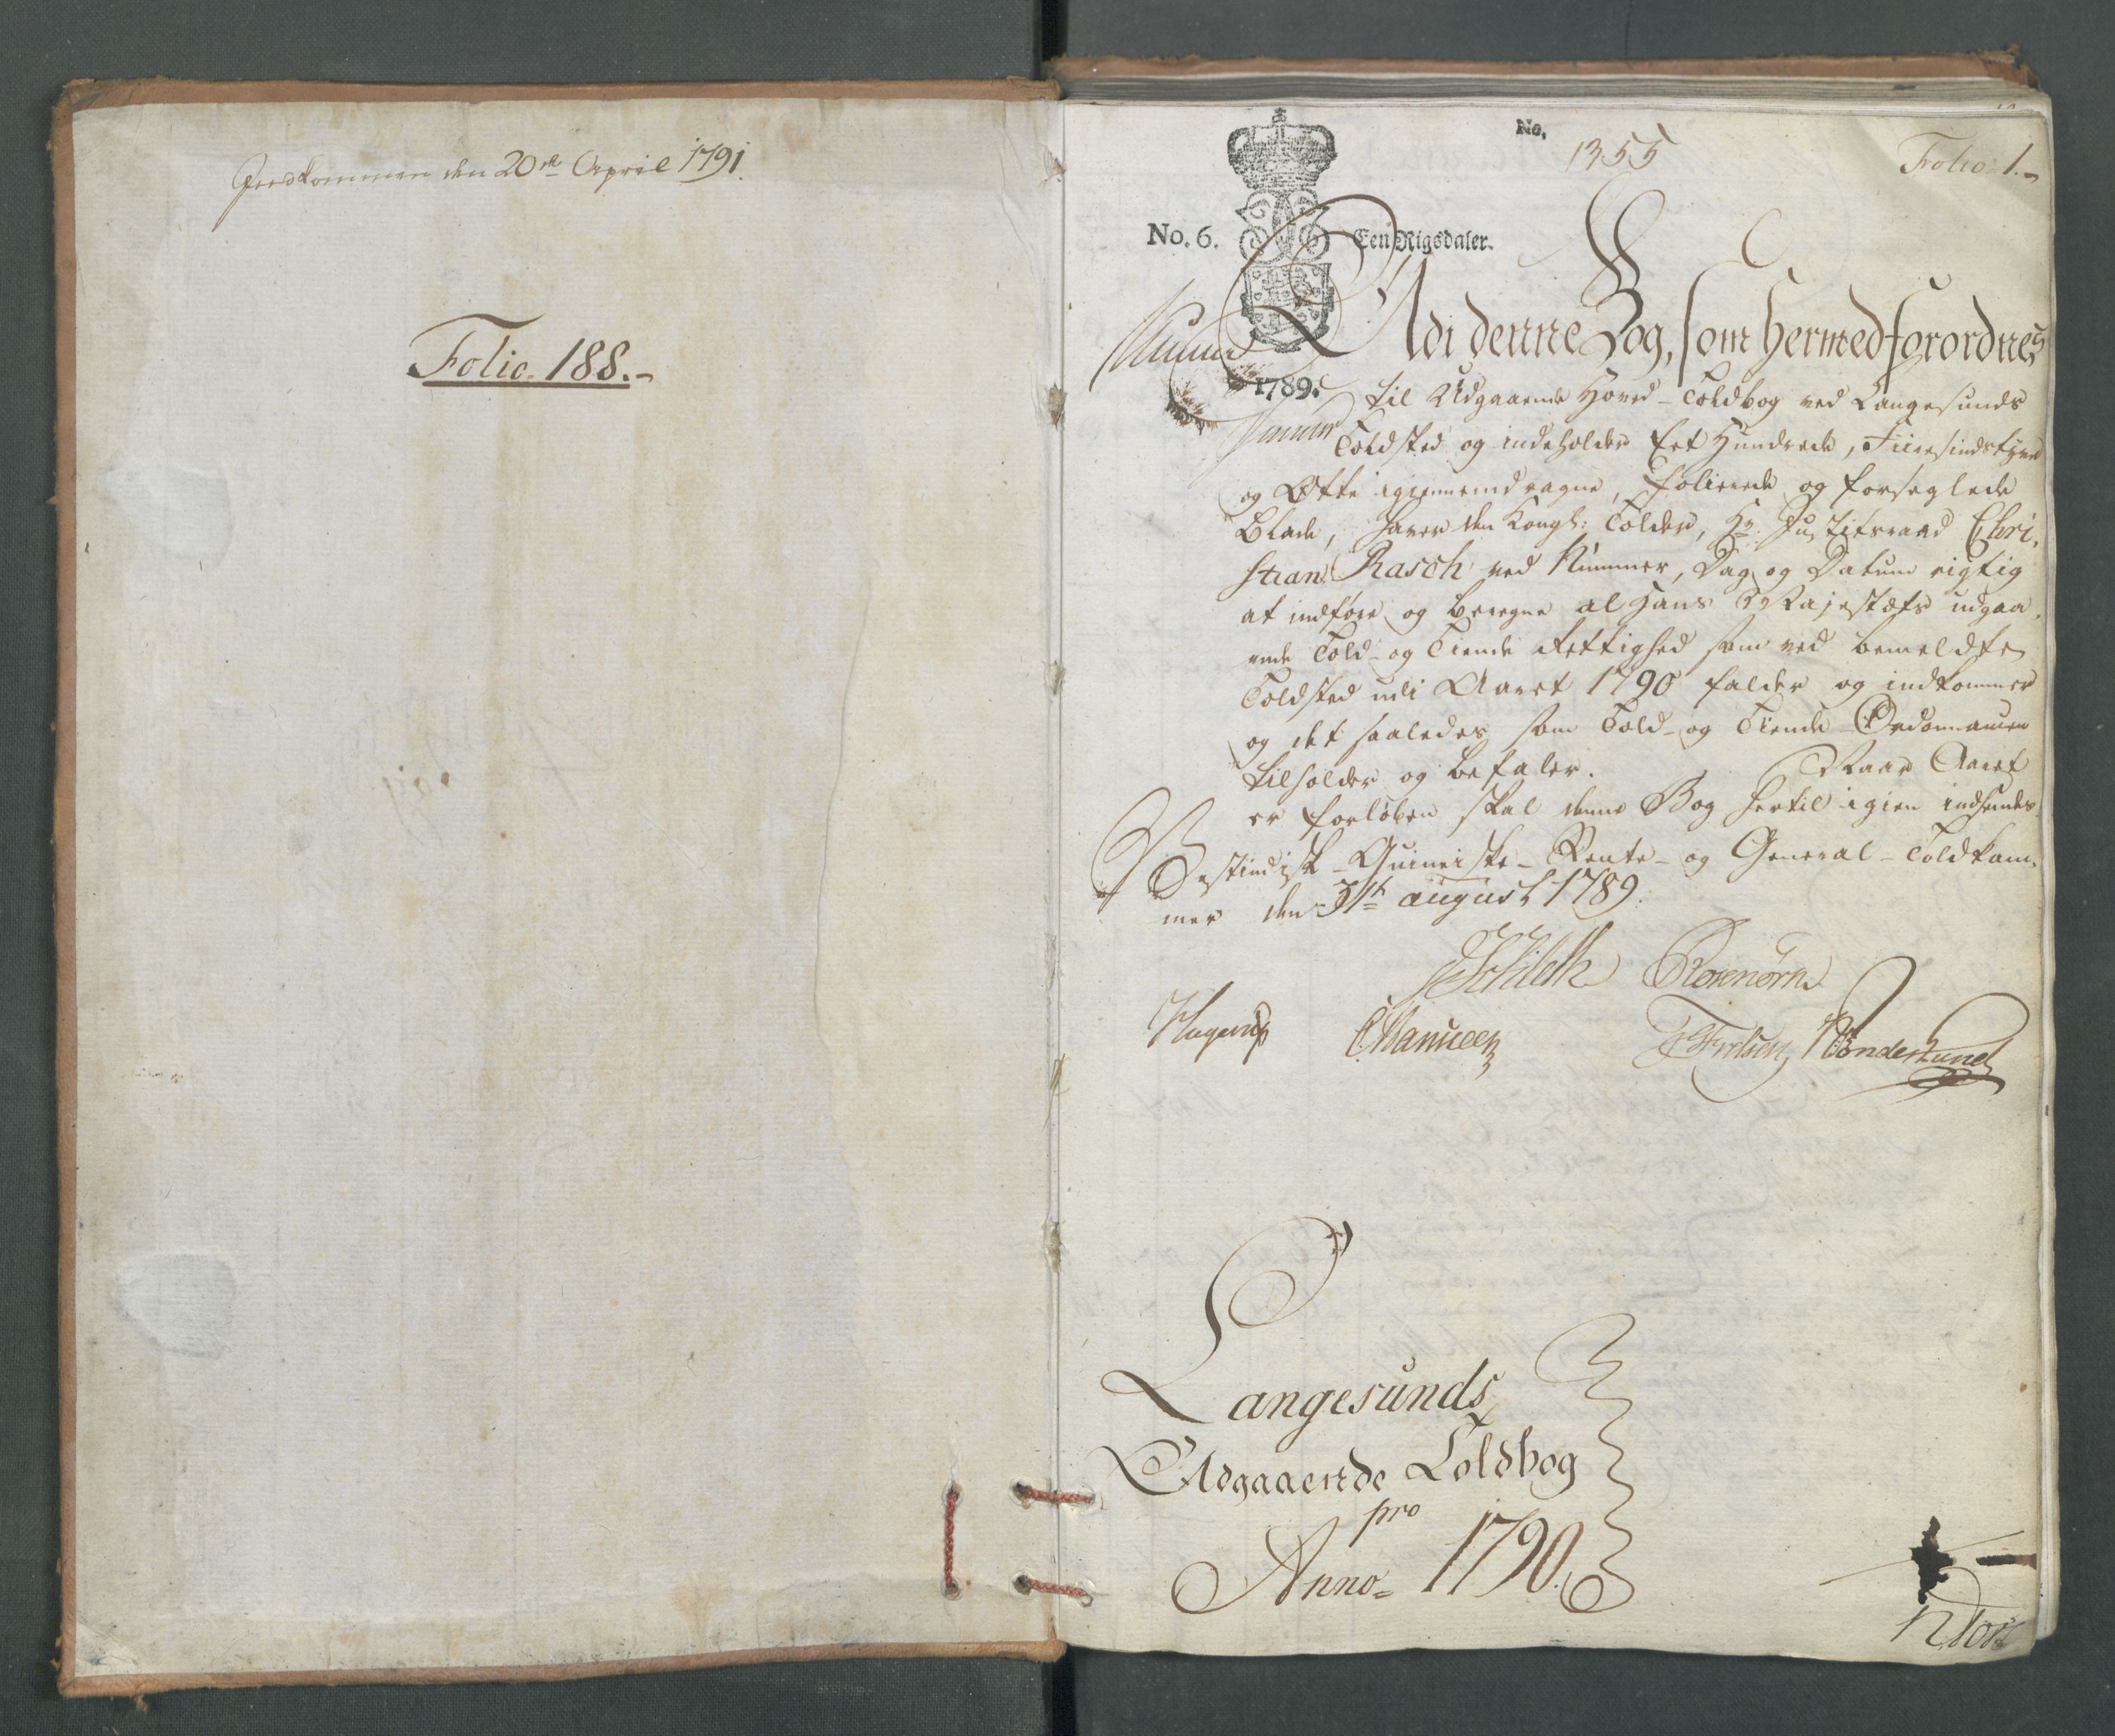 Indkommen den 20de April 1791.
Folio 188.-
No.
1355
Folio 1.-
No. 6.
Een Rigsdaler.
Udi denne Bog, som hermed forordnes
1789.
til Udgaaende Hoved-Toldbog ved Langesunds
Toldsted og indeholder Eet Hundrede, Fiiresindstyve
og Otte igiennemdragne, folierede og forseglede
Blade, haver den Kongl: Tolder, Hr Justitsraad Chri-
stian Rasch ved Nummer, Dag og Datum rigtig
at indføre og beregne al Hans Majestæts udgaa-
ende Told- og Tiende Rettighed som ved bemeldte
Toldsted udi Aaret 1790 falder og indkommer
og det saaledes som Told- og Tiende Ordonnancen
tilholder og befaler. Naar Aaret
er forløben skal denne Bog hertil igien indsendes.
Vestindisk-Guineiske- Rente- og General-Toldkam-
mer den 31te august 1789.
Schilth Rosenørn
Hagerup
Langesunds
Udgaaende Toldbog
pro
Anno- 1790.